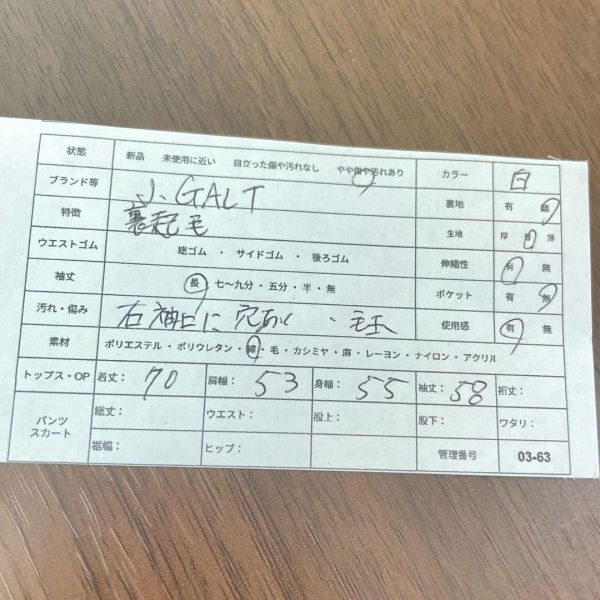 状態 新品 未使用に近い 目立った傷や汚れなし やや傷や汚れあり カラー 白
ブランド等 J.GALT 裏地 有 無
特徴 裏起毛 生地 厚 普 薄
ウエストゴム 総ゴム ・ サイドゴム ・ 後ろゴム 伸縮性 有 無
袖丈 長 ・ 七〜九分 ・ 五分 ・ 半 ・ 無 ポケット 有 無
汚れ・傷み 右袖口に穴あり ・ 毛玉 使用感 有 無
素材 ポリエステル ・ ポリウレタン ・ 綿 ・ 毛 ・ カシミヤ ・ 麻 ・ レーヨン ・ ナイロン ・ アクリル
トップス・OP 着丈: 70 肩幅: 53 身幅: 55 袖丈: 58 裄丈:
パンツ スカート 総丈: ウエスト: 股上: 股下: ワタリ:
裾幅: ヒップ: 管理番号 03-63